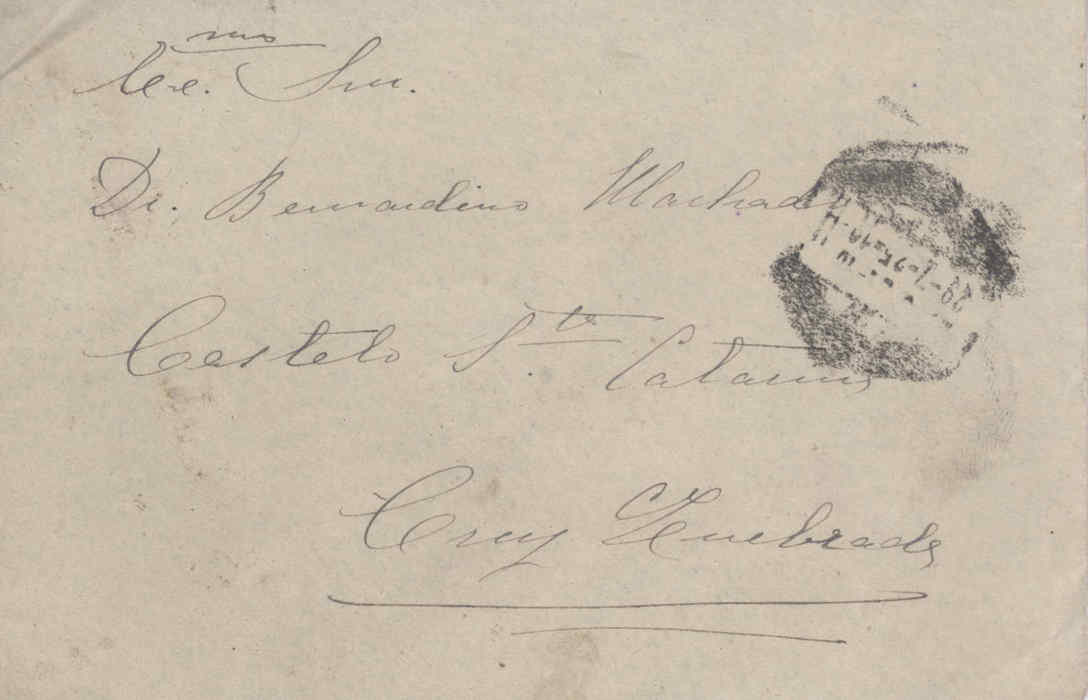 Exmo. Snr.
Dr. Bernardino Machado
Castelo S.ta Catarina
Cruz Quebrada